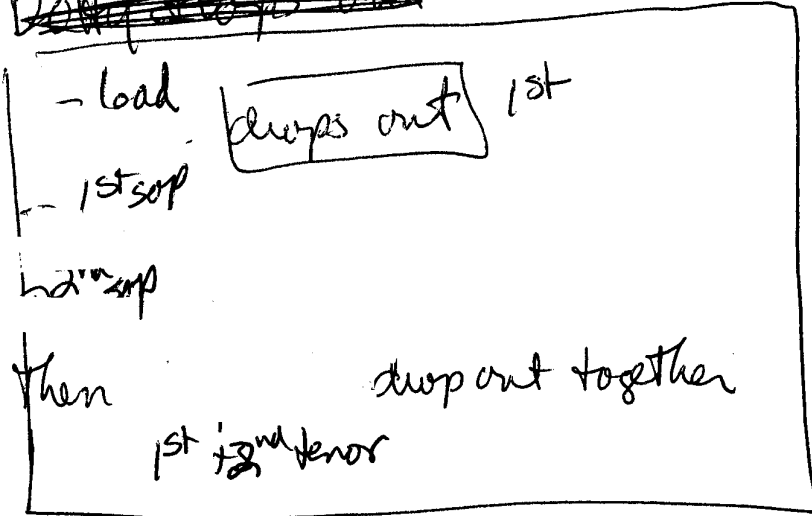 - load drops out 1st
- 1st sop
- 2nd sop
then drop out together
1st + 2nd tenor